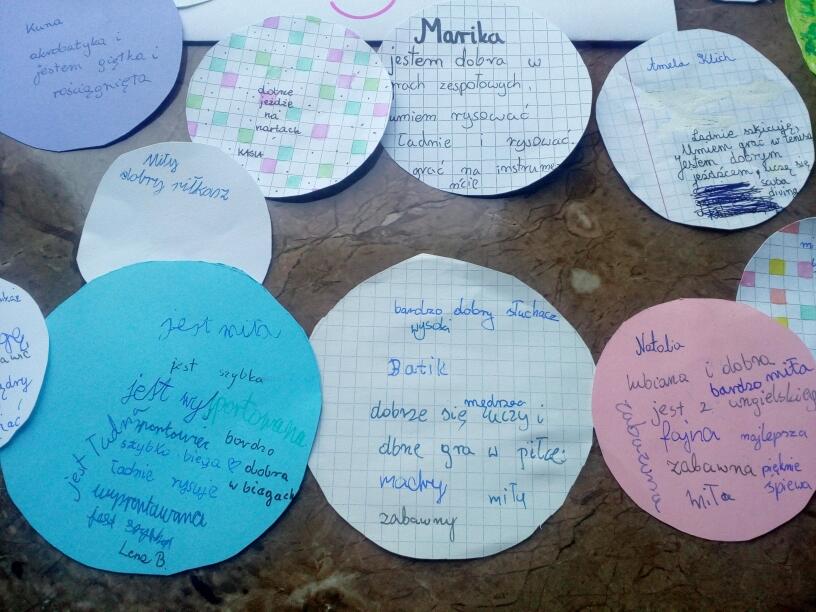 Kuna
akrobatyka i
jestem giętka i
rościągnięta
dobrze
jeżdżę
na
nartach
KASIA
Marika
jestem dobra w
grach zespołowych,
umiem rysować
Ładnie i rysować.
grać na instrumę
ncie
Amela Klich
Ładnie szkicuję,
Umiem grać w tenisa
Jestem dobrym
jeźdźcem, uczę się
scuba
diving
Miły
dobry piłkarz
Jest miła
jest szybka
jest wysportowana
bardzo
szybko biega dobra
ładnie rysuje w biegach
wysportowana
jest szybka
Lena B.
bardzo dobry słuchacz
wysoki
Batik
mędrzec
dobrze się uczy i
dbne gra w piłcę
mądry
miły
zabawny
Natalia
lubiana i dobra
bardzo miła
jest z angielskiego
fajna najlepsza
zabawna pięknie
miła śpiewa
zabawna